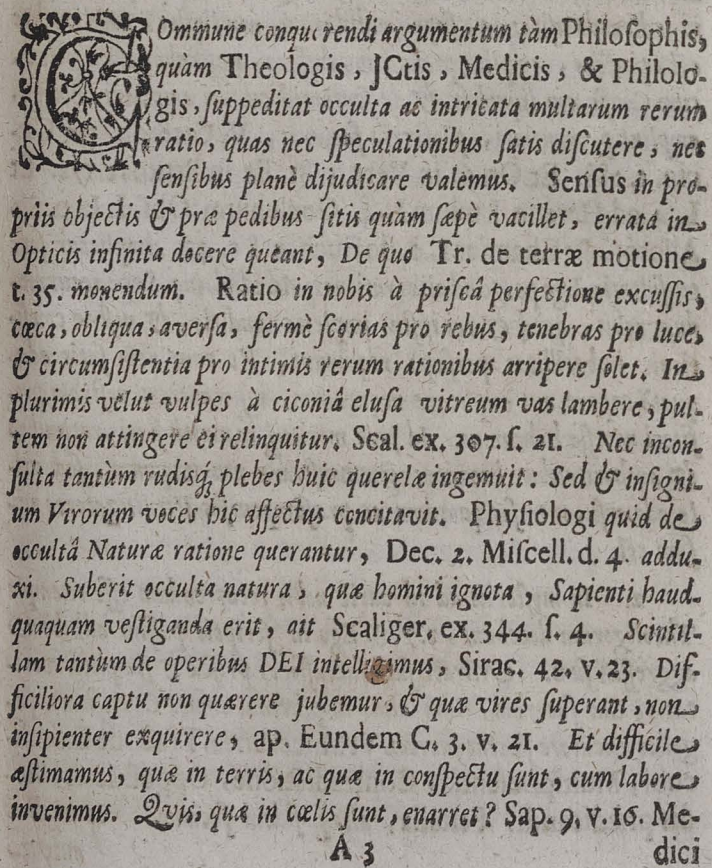 COmmune conquerendi argumentum tàm Philoſophis,
quàm Theologis, JCtis, Medicis, & Philolo-
gis, ſuppeditat occulta ac intricata multarum rerum
ratio, quas nec ſpeculationibus ſatis diſcutere, nec
ſenſibus planè dijudicare valemus. Senſus in pro-
priis objectis & præ pedibus ſitis quàm ſæpè vacillet, errata in
Opticis infinita docere queant, De quo Tr. de terræ motione
t. 35. monendum. Ratio in nobis à priſcâ perfectione excuſſis,
cœca, obliqua, averſa, fermè ſcorias pro rebus, tenebras pro luce,
& circumſiſtentia pro intimis rerum rationibus arripere ſolet. In
plurimis velut vulpes à ciconiâ eluſa vitreum vas lambere, pul-
tem non attingere ei relinquitur. Scal. ex. 307. ſ. 21. Nec incon-
ſulta tantùm rudisq́; plebes huic querelæ ingemuit: Sed & inſigni-
um Virorum voces hic affectus concitavit. Phyſiologi quid de
occultâ Naturæ ratione querantur, Dec. 2. Miſcell. d. 4. addu-
xi. Suberit occulta natura, quæ homini ignota, Sapienti haud-
quaquam veſtiganda erit, ait Scaliger, ex. 344. ſ. 4. Scintil-
lam tantùm de operibus DEI intelligimus, Sirac. 42. v. 23. Dif-
ficiliora captu non quærere jubemur, & quæ vires ſuperant, non
inſipienter exquirere, ap. Eundem C. 3. v. 21. Et difficile
æſtimamus, quæ in terris, ac quæ in conſpectu ſunt, cum labore
invenimus. Qvis, quæ in cœlis ſunt, enarret? Sap. 9. v. 16. Me-
A 3 dici